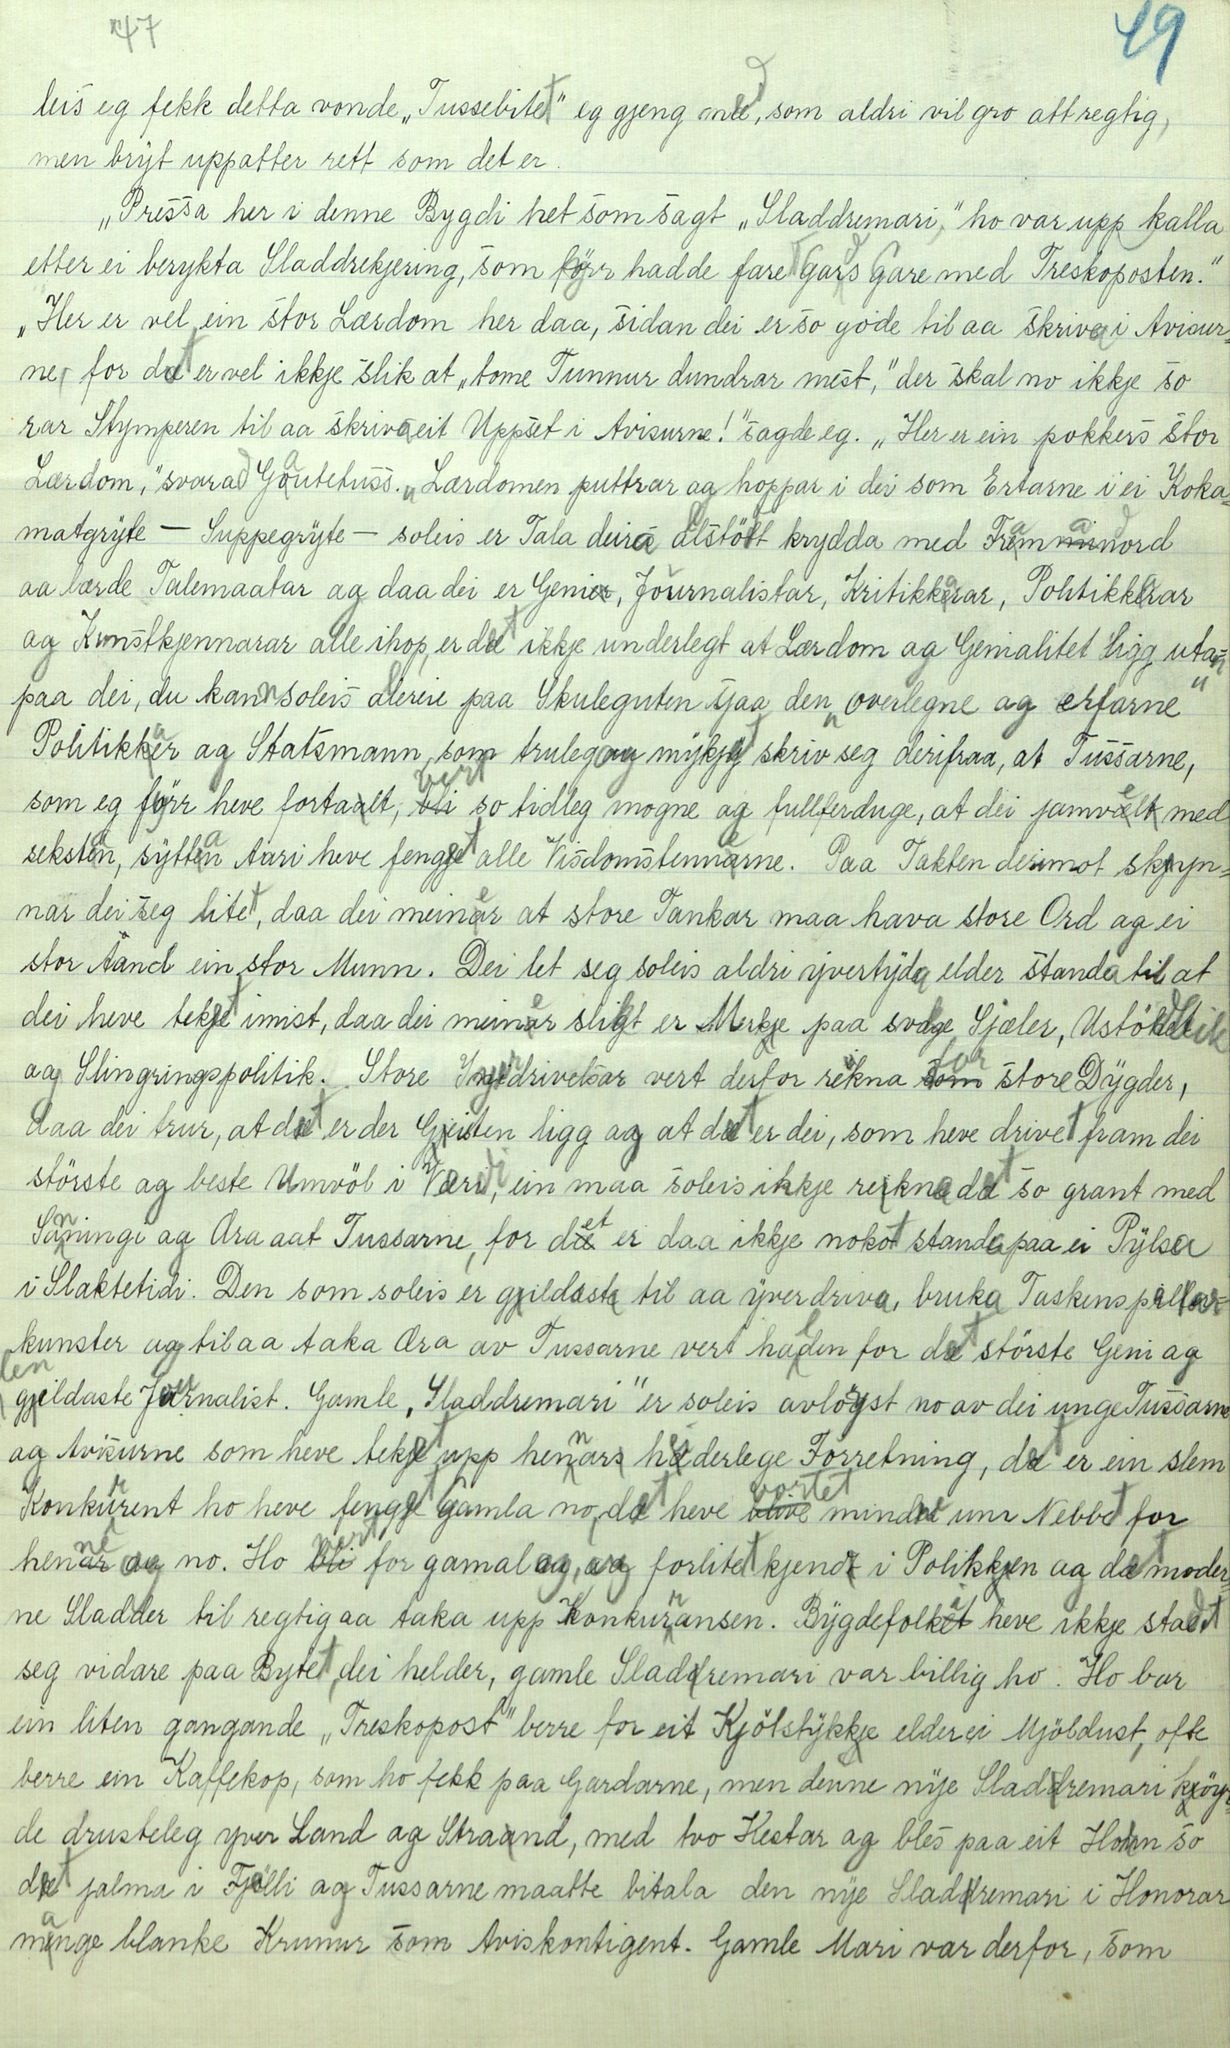 47
49
leis eg fekk detta vonde „Tussebitet" eg gjeng med, som aldri vil gro att regtig,
men bryt uppatter rett som det er.
„Pressa her i denne Bygdi het som sagt „Sladdremari," ho var upp kalla
etter ei berykta Sladdrekjering, som förr hadde fare Gard Gare med Treskoposten."
„Her er vel ein stor Lærdom her daa, sidan dei er so gode til aa skriva i Avisur-
ne, for det er vel ikkje slik at „tome Tunnur dundrar mest," der skal no ikkje so
rar Stymperen til aa skriva eit Uppset i Avisurne!" sagde eg. „Her er ein pokkers stor
Lærdom," svarad Gautetuss. „Lærdomen puttrar ag hoppar i dei som Ertarne i ei Koka-
matgryte — Suppegryte — soleis er Tala deira alstött krydda med Framandord
aa lærde Talemaatar ag daa dei er Genier, Journalistar, Kritikkarar, Politikkarar
ag Kunstkjennarar alle ihop, er det ikkje underlegt at Lærdom ag Genialitet ligg utan
paa dei, du kann soleis allereie paa Skuleguten sjaa den „overlegne ag erfarne"
Politikkar ag Statsmann, som truleg og mykjet skriv seg derifraa, at Tussarne,
som eg förr heve fortalt, vert so tidleg mogne ag fullferduge, at dei jamvel med
sekstan, syttan Aari heve fenget alle Visdomstennerne. Paa Takten derimot skyn-
nar dei seg litet, daa dei meiner at store Tankar maa hava store Ord ag ei
stor Aand ein stor Munn. Dei let seg soleis aldri yvertyda elder standa til at
dei heve teket imist, daa dei meiner sligt er Merkje paa svage Sjæler, Ustödleik
ag Slingringspolitik. Store Yverdrivelsar vert derfor rekna for store Dygder,
daa dei trur, at det er der Geisten ligg ag at det er dei, som heve drivet fram dei
störste ag beste Umvöl i Verdi, ein maa soleis ikkje rekna det so grant med
Sanningi ag Æra aat Tussarne, for det er daa ikkje nokot standa paa ei Pylsa
i Slaktetidi. Den som soleis er gildaste til aa yverdriva, bruka Taskenspellar-
kunster ag til aa taka Æra av Tussarne vert halden for det störste Geni ag
den gildaste Journalist. Gamle „Sladdremari" er soleis avlöyst no av dei unge Tussarne
ag Avisurne som heve teket upp hennars hederlege Forretning, det er ein slem
Konkurrent ho heve fenget Gamla no, det heve vortet mindre um Nebbet for
henne og no. Ho vert for gamal og, ag forlitet kjend i Polikken ag det moder
ne Sladder til regtig aa taka upp Konkurransen. Bygdefolket heve ikkje stadt
seg vidare paa Bytet dei helder, gamle Sladremari var billig ho. Ho bar
ein liten gangande „Treskopost" berre for eit Kjötstykkje elder ei Mjöldust, ofte
berre ein Kaffekop, som ho fekk paa Gardarne, men denne nye Sladremari köyr
de drusteleg yver Land ag Strand, med tvo Hestar ag bles paa eit Horn so
det jalma i Fjelli ag Tussarne maatte bitala den nye Sladremari i Honorar
mange blanke Krunur som Aviskontigent. Gamle Mari var derfor, som